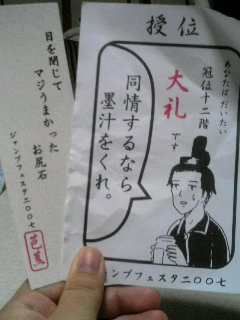 授位
あなたはだいたい
冠位十二階
大礼
です
同情するなら
墨汁をくれ。
ジャンプフェスタ二〇〇七
目を閉じて
マジうまかった
お尻石
ジャンプフェスタ二〇〇七
芭蕉